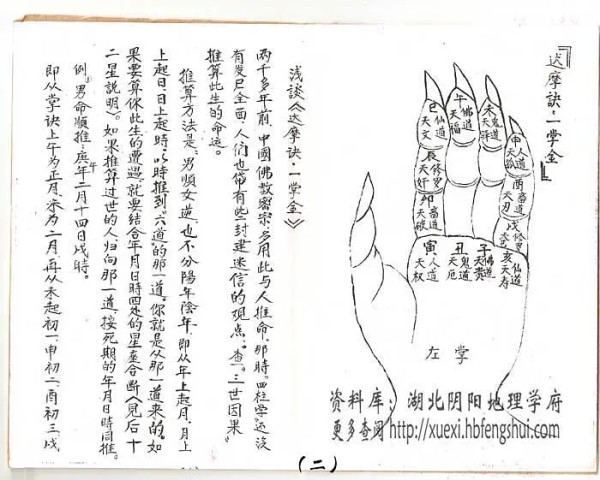 『达摩訣·一掌金』
午佛道天福
未鬼道天驿
巳仙道天文
申人道天孤
辰修罗天奸
酉畜道天刃
卯畜道天破
戌修罗天艺
寅人道天权
丑鬼道天厄
子佛道天贵
亥仙道天寿
左掌
浅談《达摩訣·一掌金》
两千多年前，中國佛教密宗，多用此与人推命，那时，四柱学远没
有发尸全面，人们也带有些封建迷信的观点。查“三世因果”
推算此生的命运。
推算方法是：男順女逆，也不分陽年陰年，即从年上起月，月上
上起日，日上起时，以時推到“六道”的那一道。你就是从那一道來的。如
果要算你此生的遭遇，就要结合年月日時四处的星座合断《見后十
二星説明》。如果推算过世的人，归向那一道，按死期的年月日時同推。
例：男命順推，庚午年二月十四日戌時。
即从掌诀上午为正月，未为二月，再从未起初一，申初二，酉初三，戌
资料库：湖北阴阳地理学府
更多查阅http://xuexi.hbfengshui.com
(二)